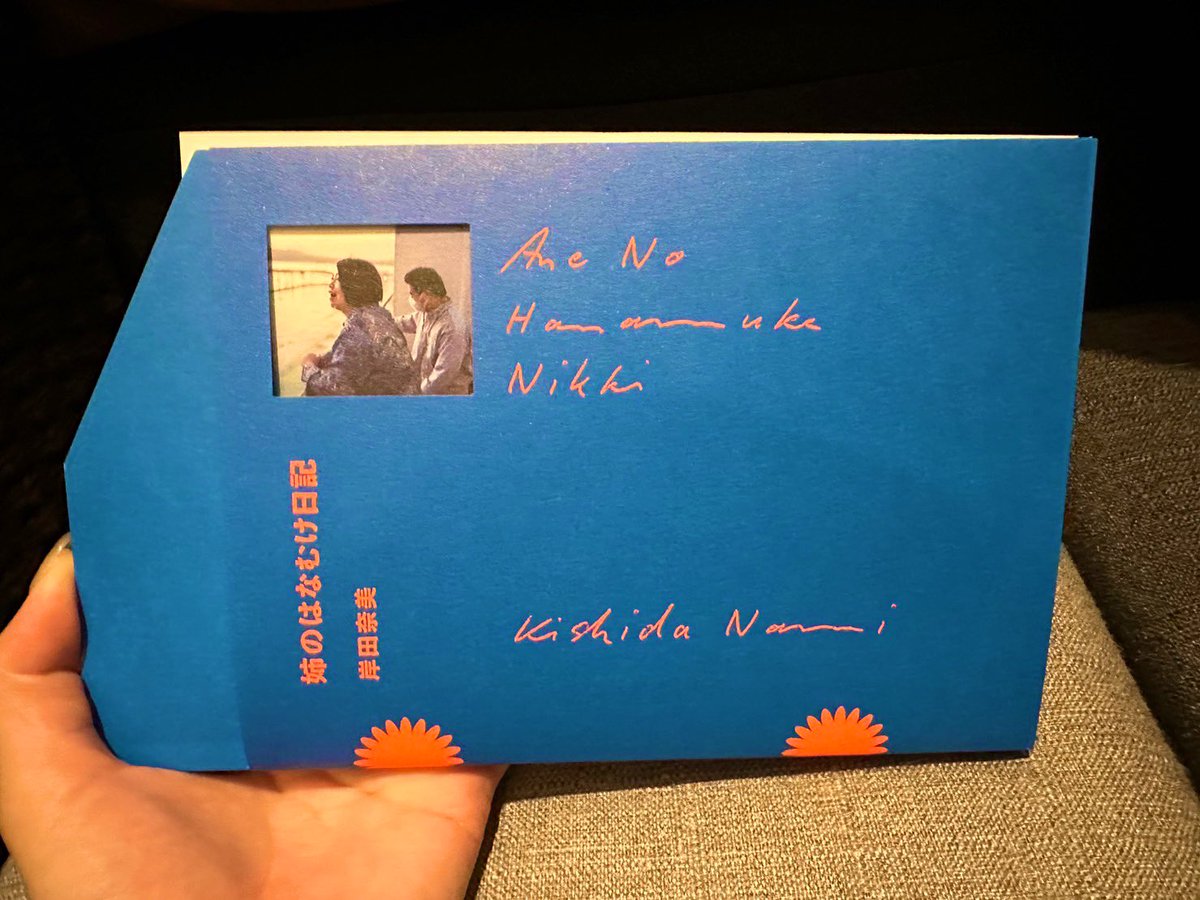 Ane No
Hanamuke
Nikki
姉のはなむけ日記
岸田奈美
Kishida Nami